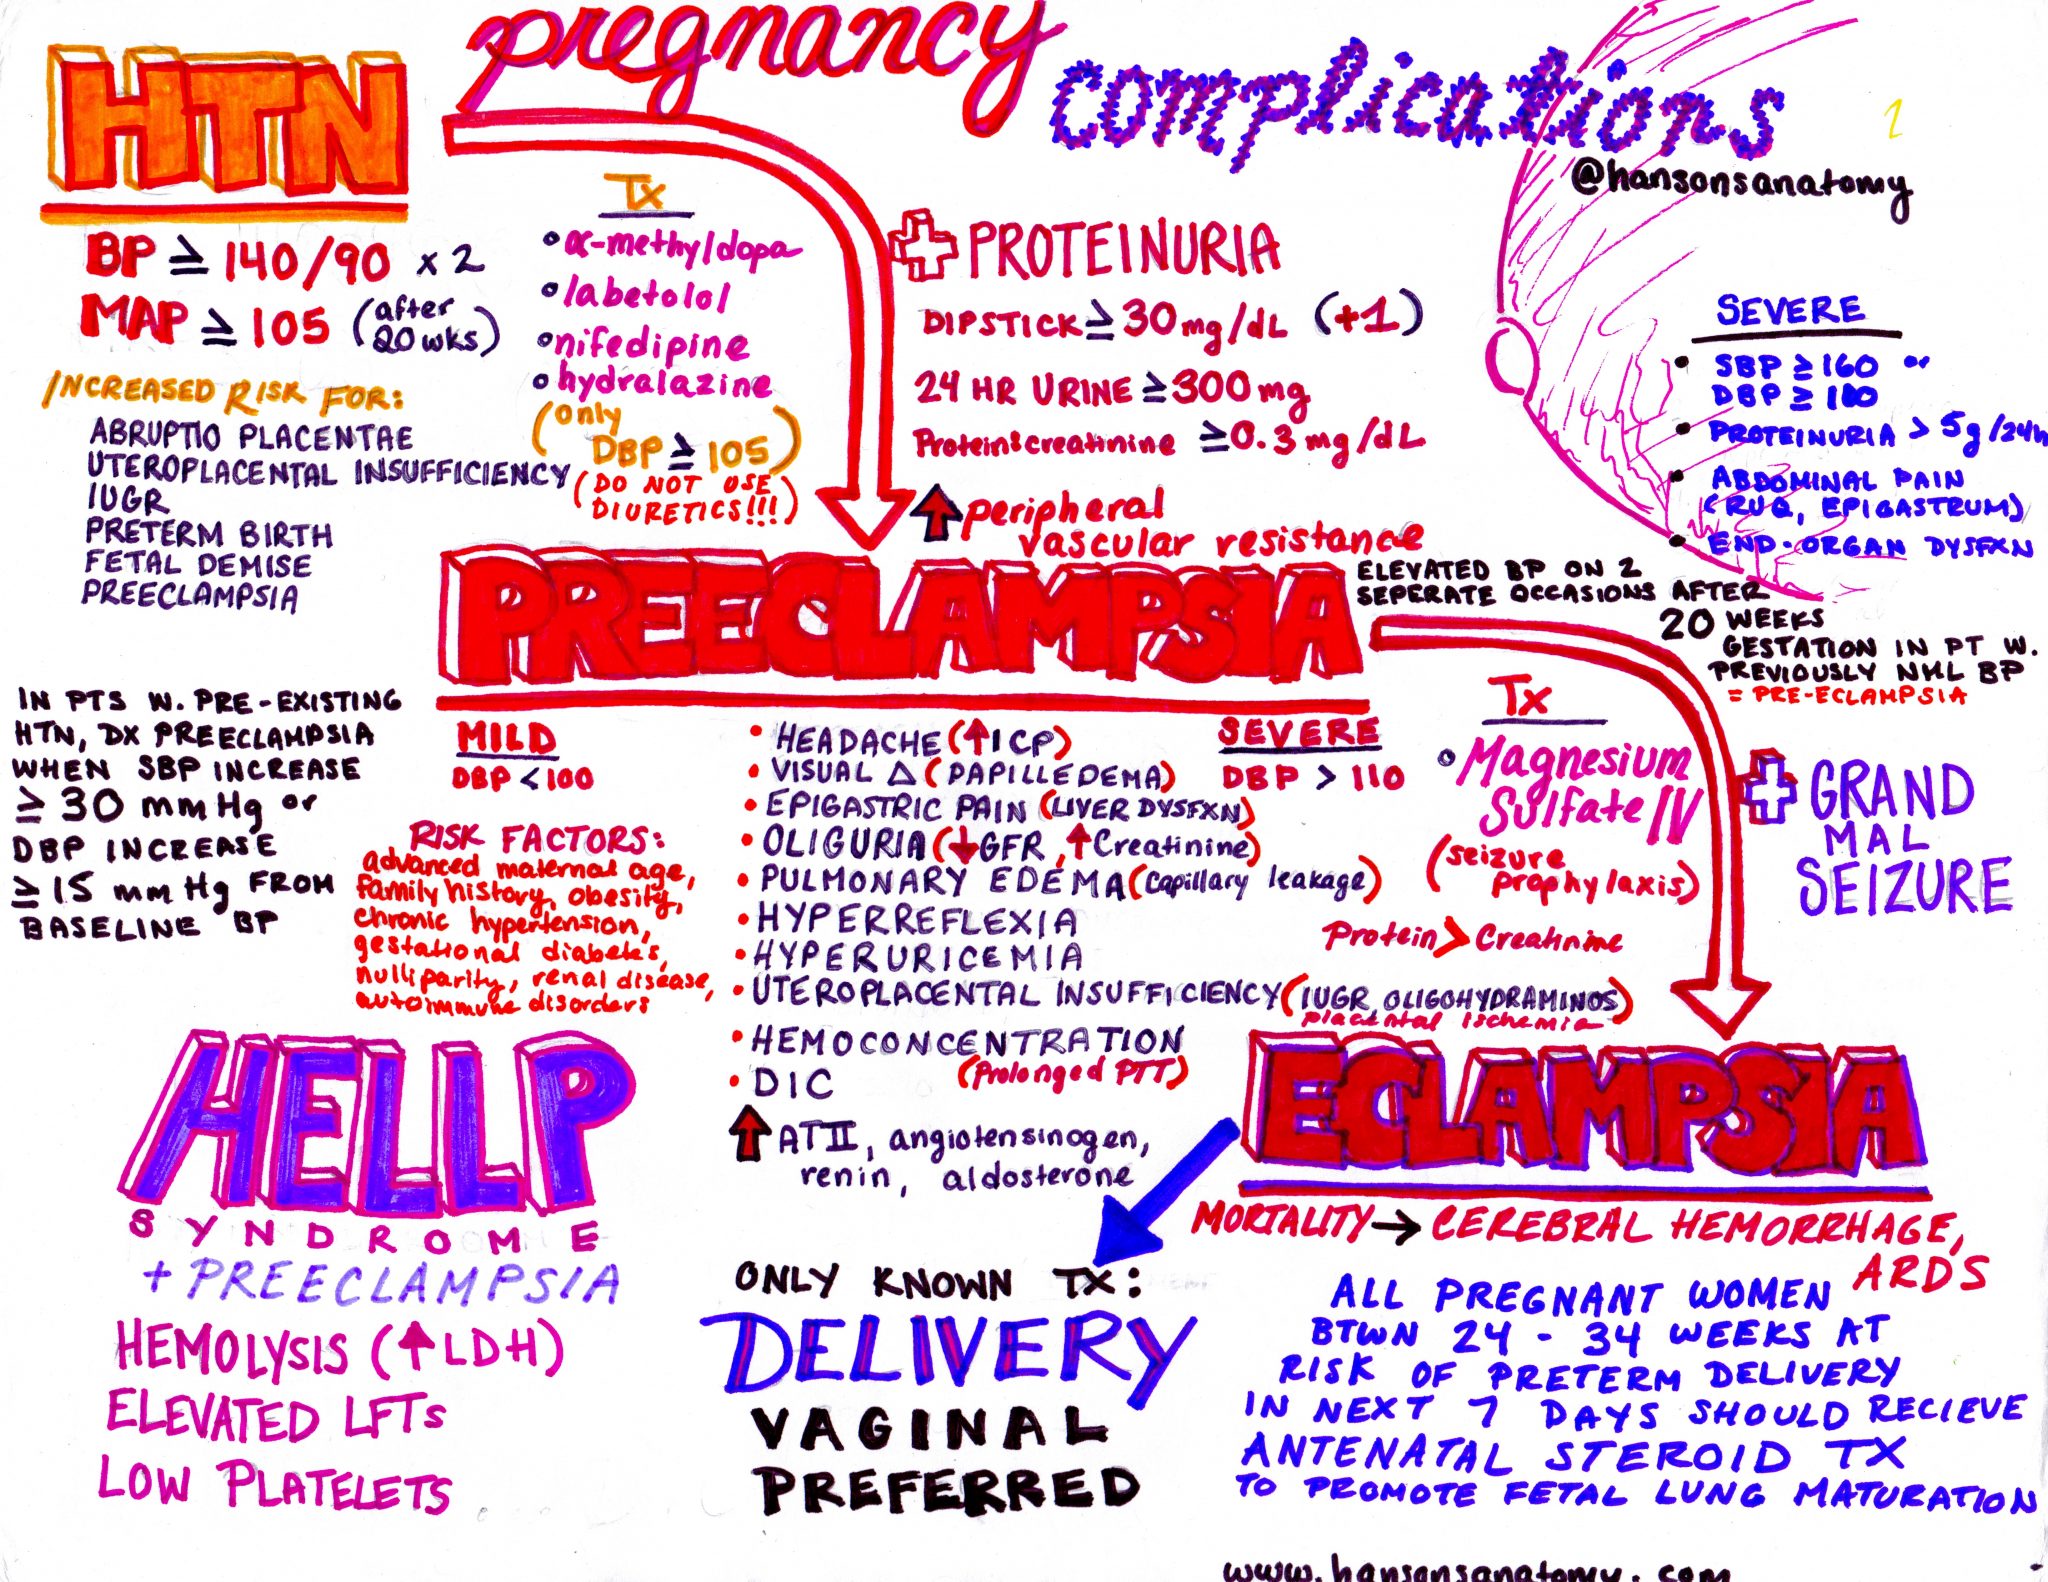 pregnancy
complications
@hansonsanatomy
HTN
BP ≥ 140/90 x 2
MAP ≥ 105 (after 20 wks)
INCREASED RISK FOR:
ABRUPTIO PLACENTAE
UTEROPLACENTAL INSUFFICIENCY
IUGR
PRETERM BIRTH
FETAL DEMISE
PREECLAMPSIA
Tx
• α-methyldopa
• labetolol
• nifedipine
• hydralazine
(only
DBP ≥ 105)
(DO NOT USE
DIURETICS!!!)
+ PROTEINURIA
DIPSTICK ≥ 30 mg/dL (+1)
24 HR URINE ≥ 300 mg
Protein:creatinine ≥ 0.3 mg/dL
↑ peripheral
vascular resistance
SEVERE
• SBP ≥ 160 or
DBP ≥ 110
• PROTEINURIA > 5g/24h
• ABDOMINAL PAIN
(RUQ, EPIGASTRUM)
• END-ORGAN DYSFXN
PREECLAMPSIA
ELEVATED BP ON 2
SEPERATE OCCASIONS AFTER
20 WEEKS
GESTATION IN PT W.
PREVIOUSLY NML BP
= PRE-ECLAMPSIA
IN PTS W. PRE-EXISTING
HTN, DX PREECLAMPSIA
WHEN SBP INCREASE
≥ 30 mmHg or
DBP INCREASE
≥ 15 mmHg FROM
BASELINE BP
MILD
DBP < 100
RISK FACTORS:
advanced maternal age,
family history, obesity,
chronic hypertension,
gestational diabetes,
nulliparity, renal disease,
autoimmune disorders
• HEADACHE (↑ICP)
• VISUAL Δ (PAPILLEDEMA)
• EPIGASTRIC PAIN (LIVER DYSFXN)
• OLIGURIA (↓GFR, ↑Creatinine)
• PULMONARY EDEMA (capillary leakage)
• HYPERREFLEXIA
• HYPERURICEMIA
• UTEROPLACENTAL INSUFFICIENCY (IUGR, OLIGOHYDRAMINOS)
placental ischemia
• HEMOCONCENTRATION
• DIC (Prolonged PTT)
↑ AT II, angiotensinogen,
renin, aldosterone
SEVERE
DBP > 110
Tx
• Magnesium
Sulfate IV
(seizure
prophylaxis)
Protein > Creatinine
+ GRAND
MAL
SEIZURE
HELLP
SYNDROME
+ PREECLAMPSIA
HEMOLYSIS (↑LDH)
ELEVATED LFTs
LOW PLATELETS
ONLY KNOWN TX:
DELIVERY
VAGINAL
PREFERRED
ECLAMPSIA
MORTALITY → CEREBRAL HEMORRHAGE,
ARDS
ALL PREGNANT WOMEN
BTWN 24 - 34 WEEKS AT
RISK OF PRETERM DELIVERY
IN NEXT 7 DAYS SHOULD RECIEVE
ANTENATAL STEROID TX
TO PROMOTE FETAL LUNG MATURATION
www.hansonsanatomy.com